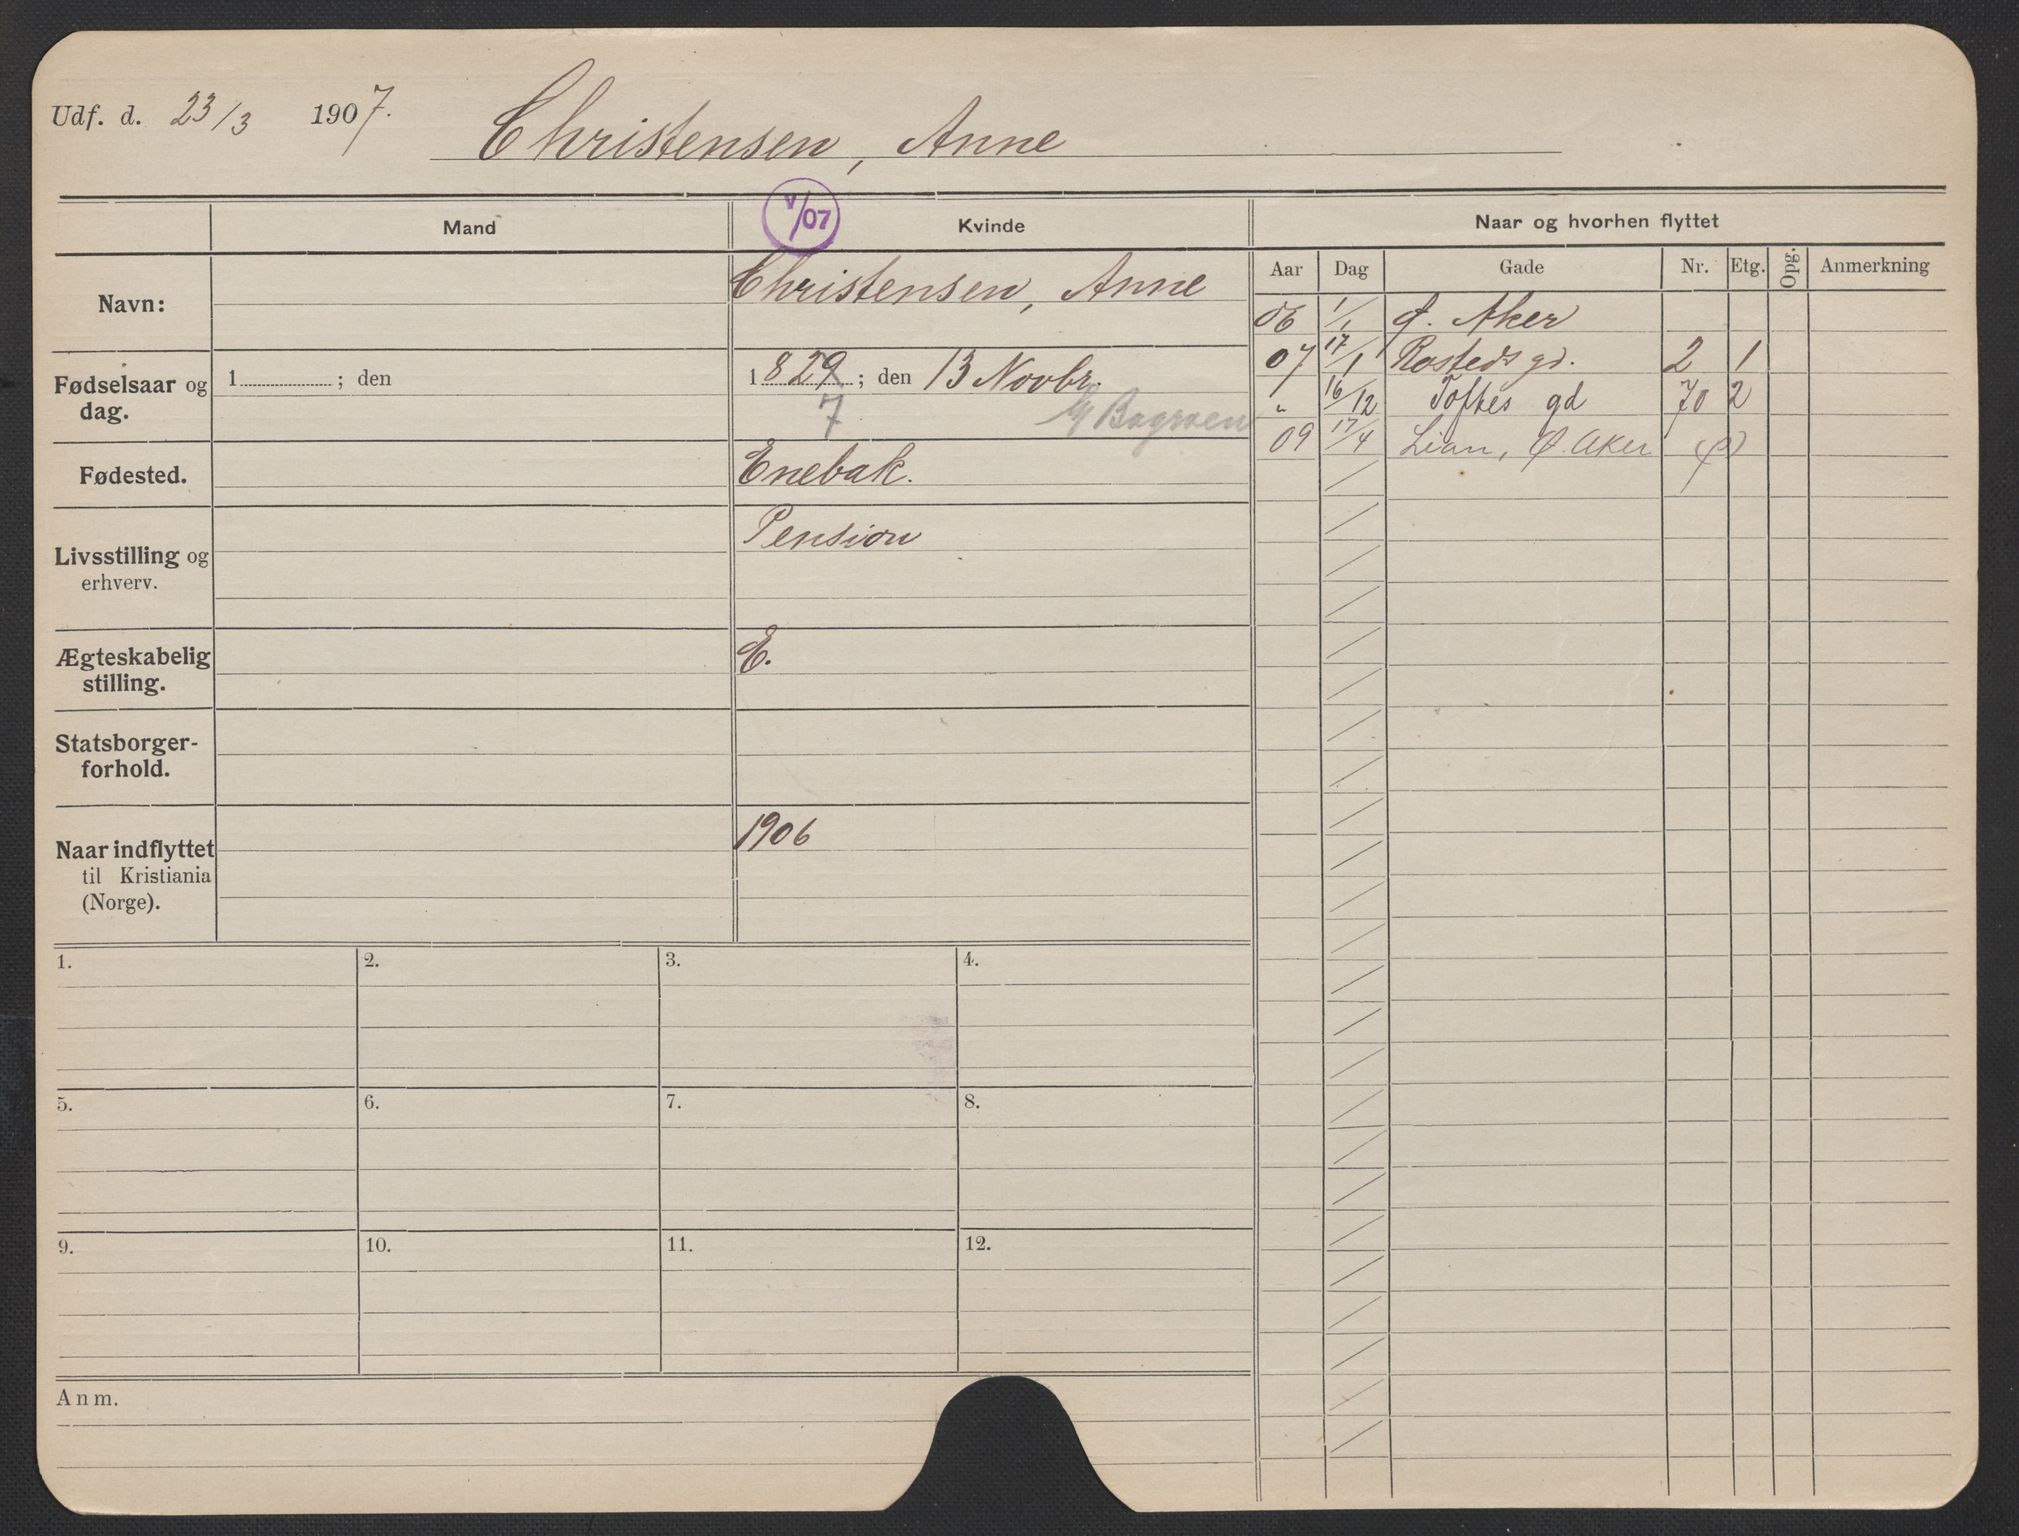 Udf. d. 23/3 1907.
Christensen, Anne
V/07
Mand
Kvinde
Naar og hvorhen flyttet
Aar Dag Gade Nr. Etg. Opg. Anmerkning
Navn:
Christensen, Anne
Fødselsaar og dag.
1 ; den
1829; den 13 Novbr.
7
Fødested.
Enebak.
Livsstilling og
erhverv.
Pension
Ægteskabelig
stilling.
E.
Statsborger-
forhold.
Naar indflyttet
til Kristiania
(Norge).
1906
06 1/1 Ø. Aker
07 17/1 Rosteds gd. 2 1
" 16/12 Toftes gd 70 2
09 17/4 Lian, Ø. Aker
1. 2. 3. 4.
5. 6. 7. 8.
9. 10. 11. 12.
Anm.